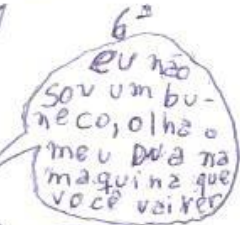 6ª
eu não
sou um bu-
neco, olha o
meu DNA na
maquina que
você vai ver